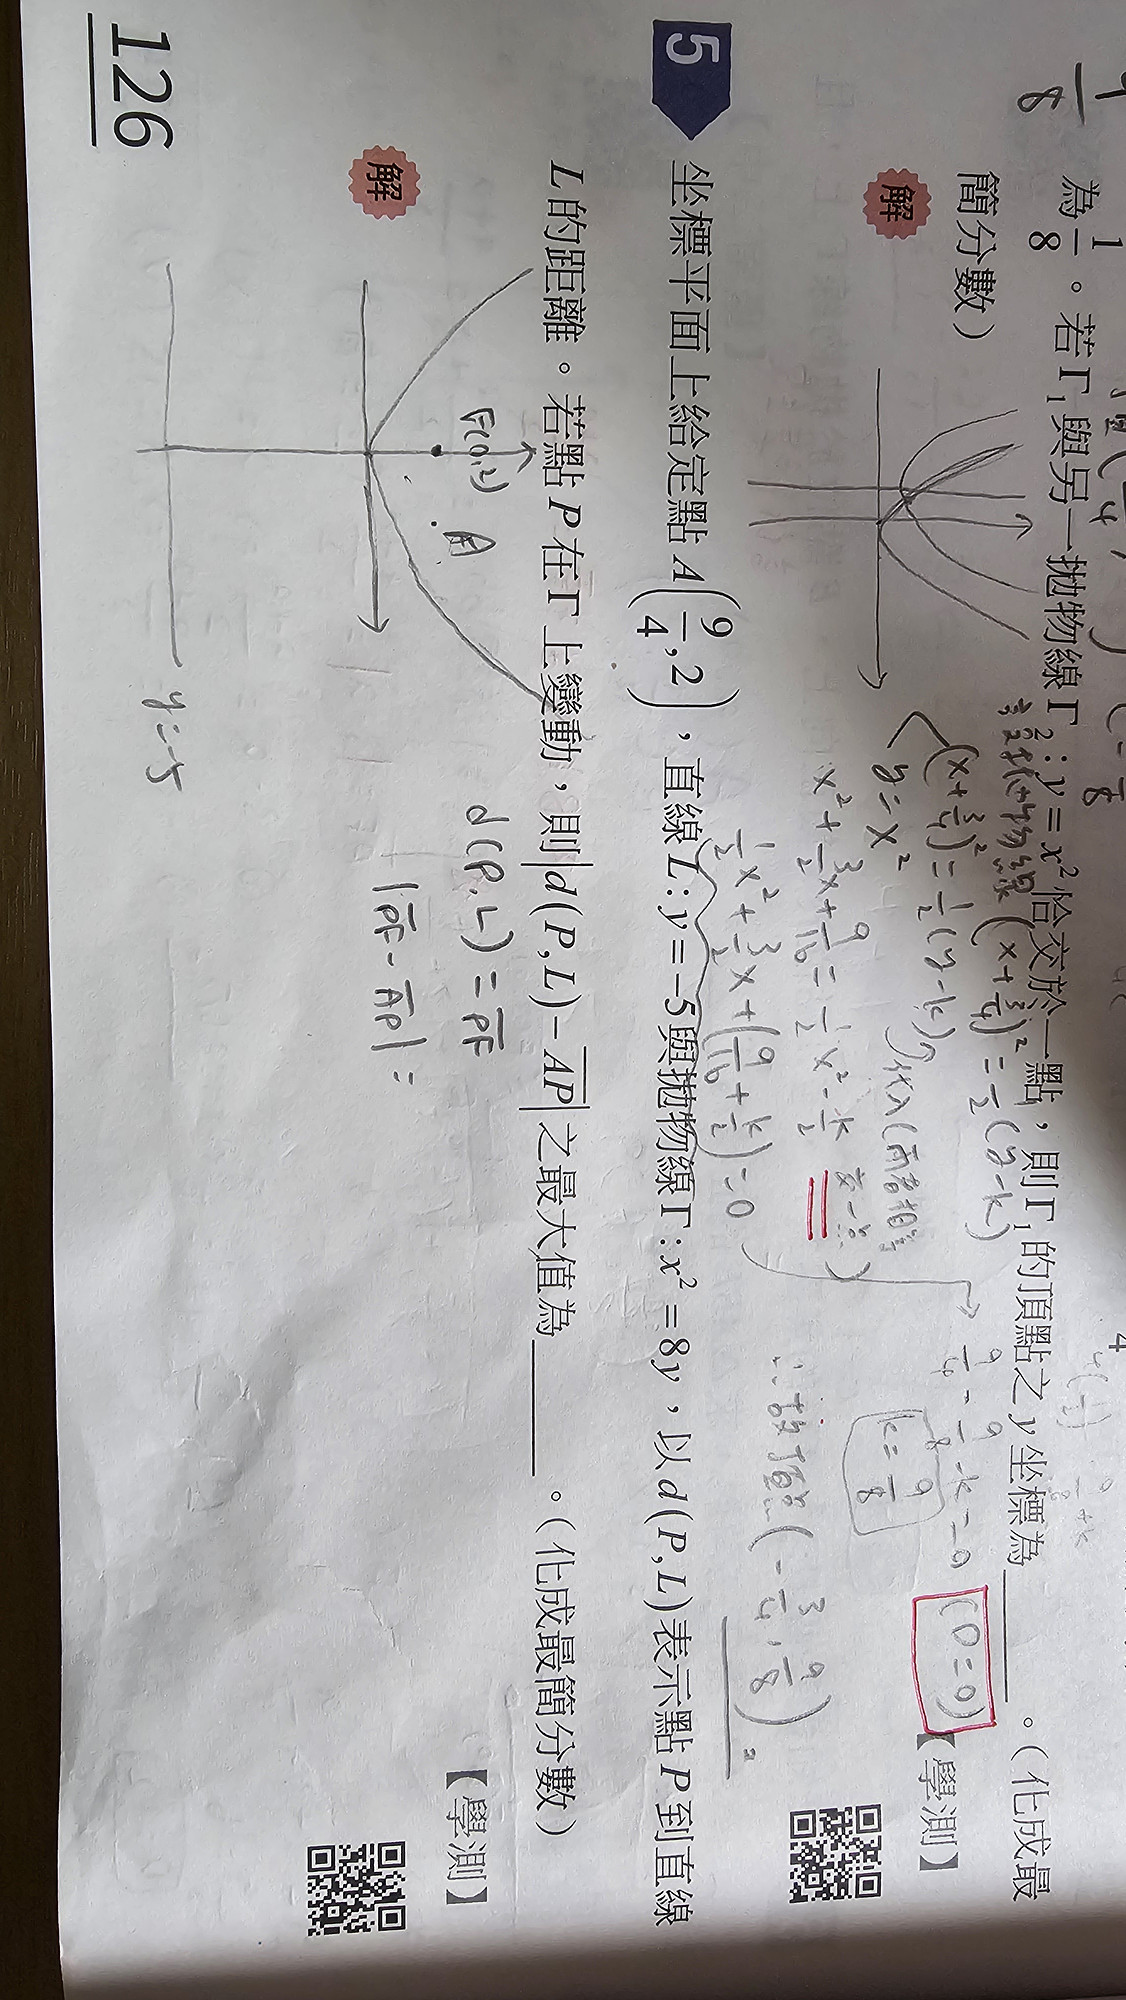 為 1/8 。若 Γ₁ 與另一拋物線 Γ₂ : y = x² 恰交於一點，則 Γ₁ 的頂點之 y 坐標為＿＿＿＿。（化成最
簡分數）
【學測】
解
(x + 3/4)² = 1/2 (y - k)
(x + 3/4)² = 1/2 (y - k)
y = x²
x² + 3/2 x + 9/16 = 1/2 x² - k/2
1/2 x² + 3/2 x + (9/16 + k/2) = 0
9/4 - 9/8 - k = 0
(D = 0)
k = 9/8
(- 3/4 , 9/8)
5
坐標平面上給定點 A(9/4, 2)，直線 L : y = -5 與拋物線 Γ : x² = 8y，以 d(P, L) 表示點 P 到直線
L 的距離。若點 P 在 Γ 上變動，則 |d(P, L) - AP̅| 之最大值為＿＿＿＿。（化成最簡分數）
【學測】
解
F(0,2)
A
y = -5
d(P, L) = P̅F̅
|P̅F̅ - A̅P̅| =
126